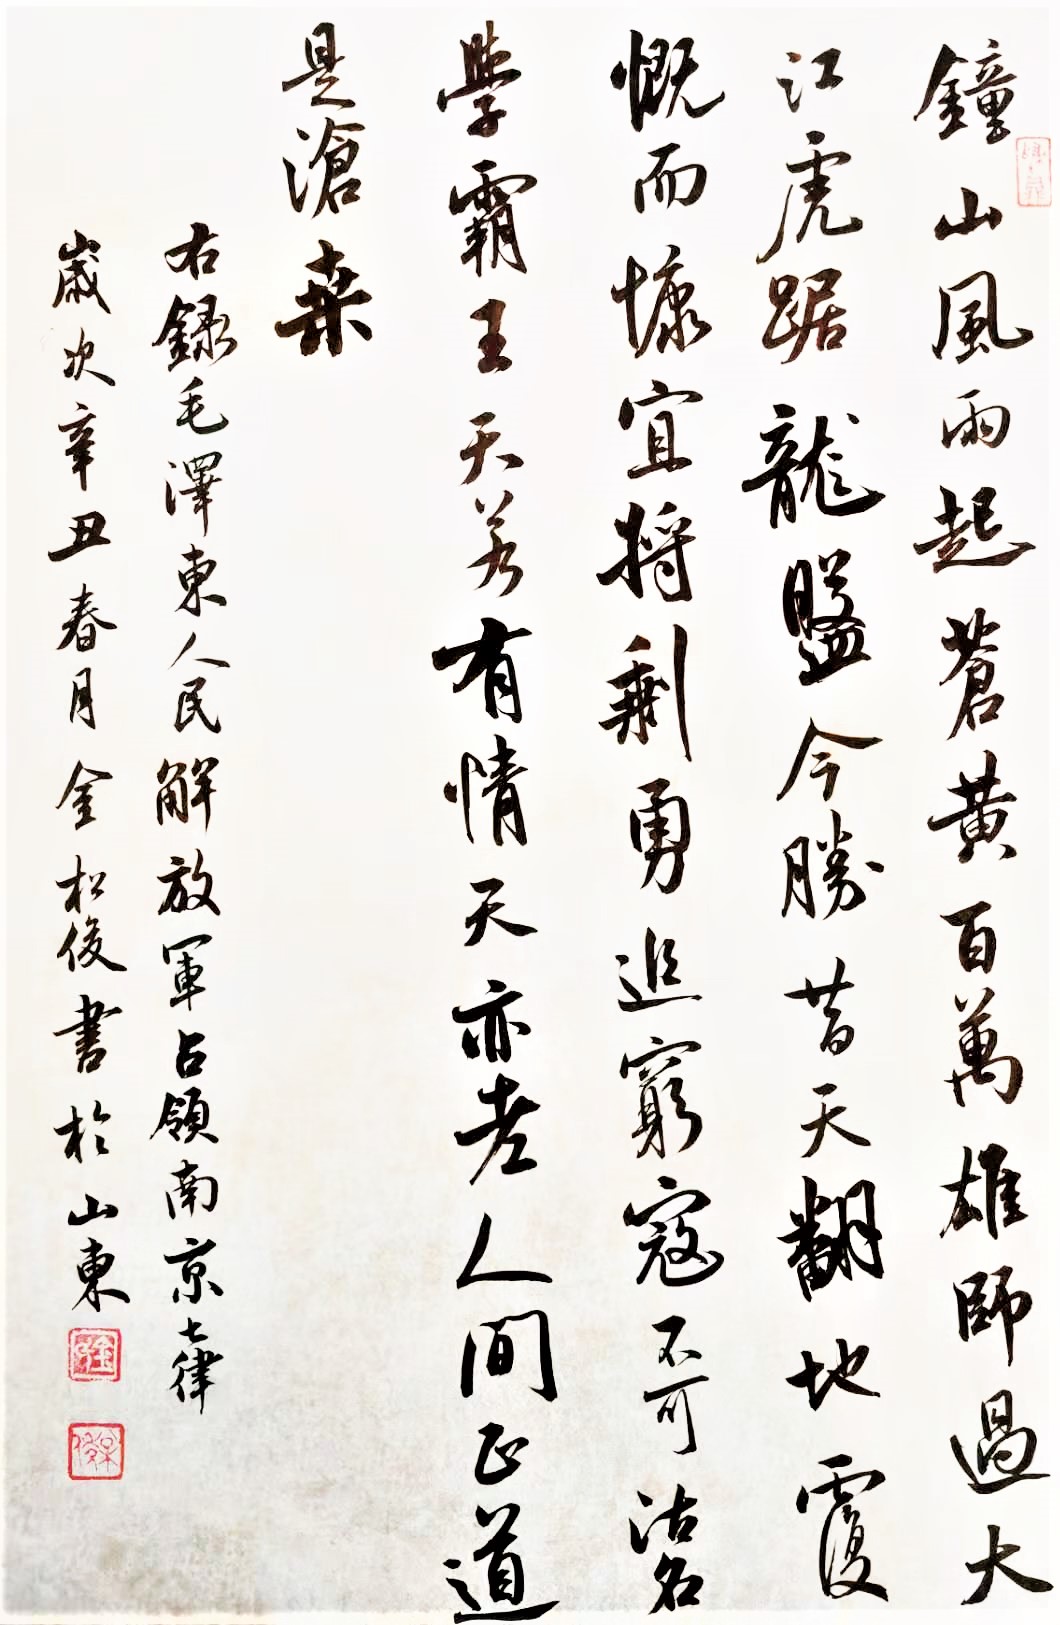 鐘山風雨起蒼黄百萬雄師過大
江虎踞龍盤今勝昔天翻地覆
慨而慷宜将剩勇追窮寇不可沽名
學霸王天若有情天亦老人間正道
是滄桑
右録毛澤東人民解放軍占領南京七律
歲次辛丑春月金松俊書於山東